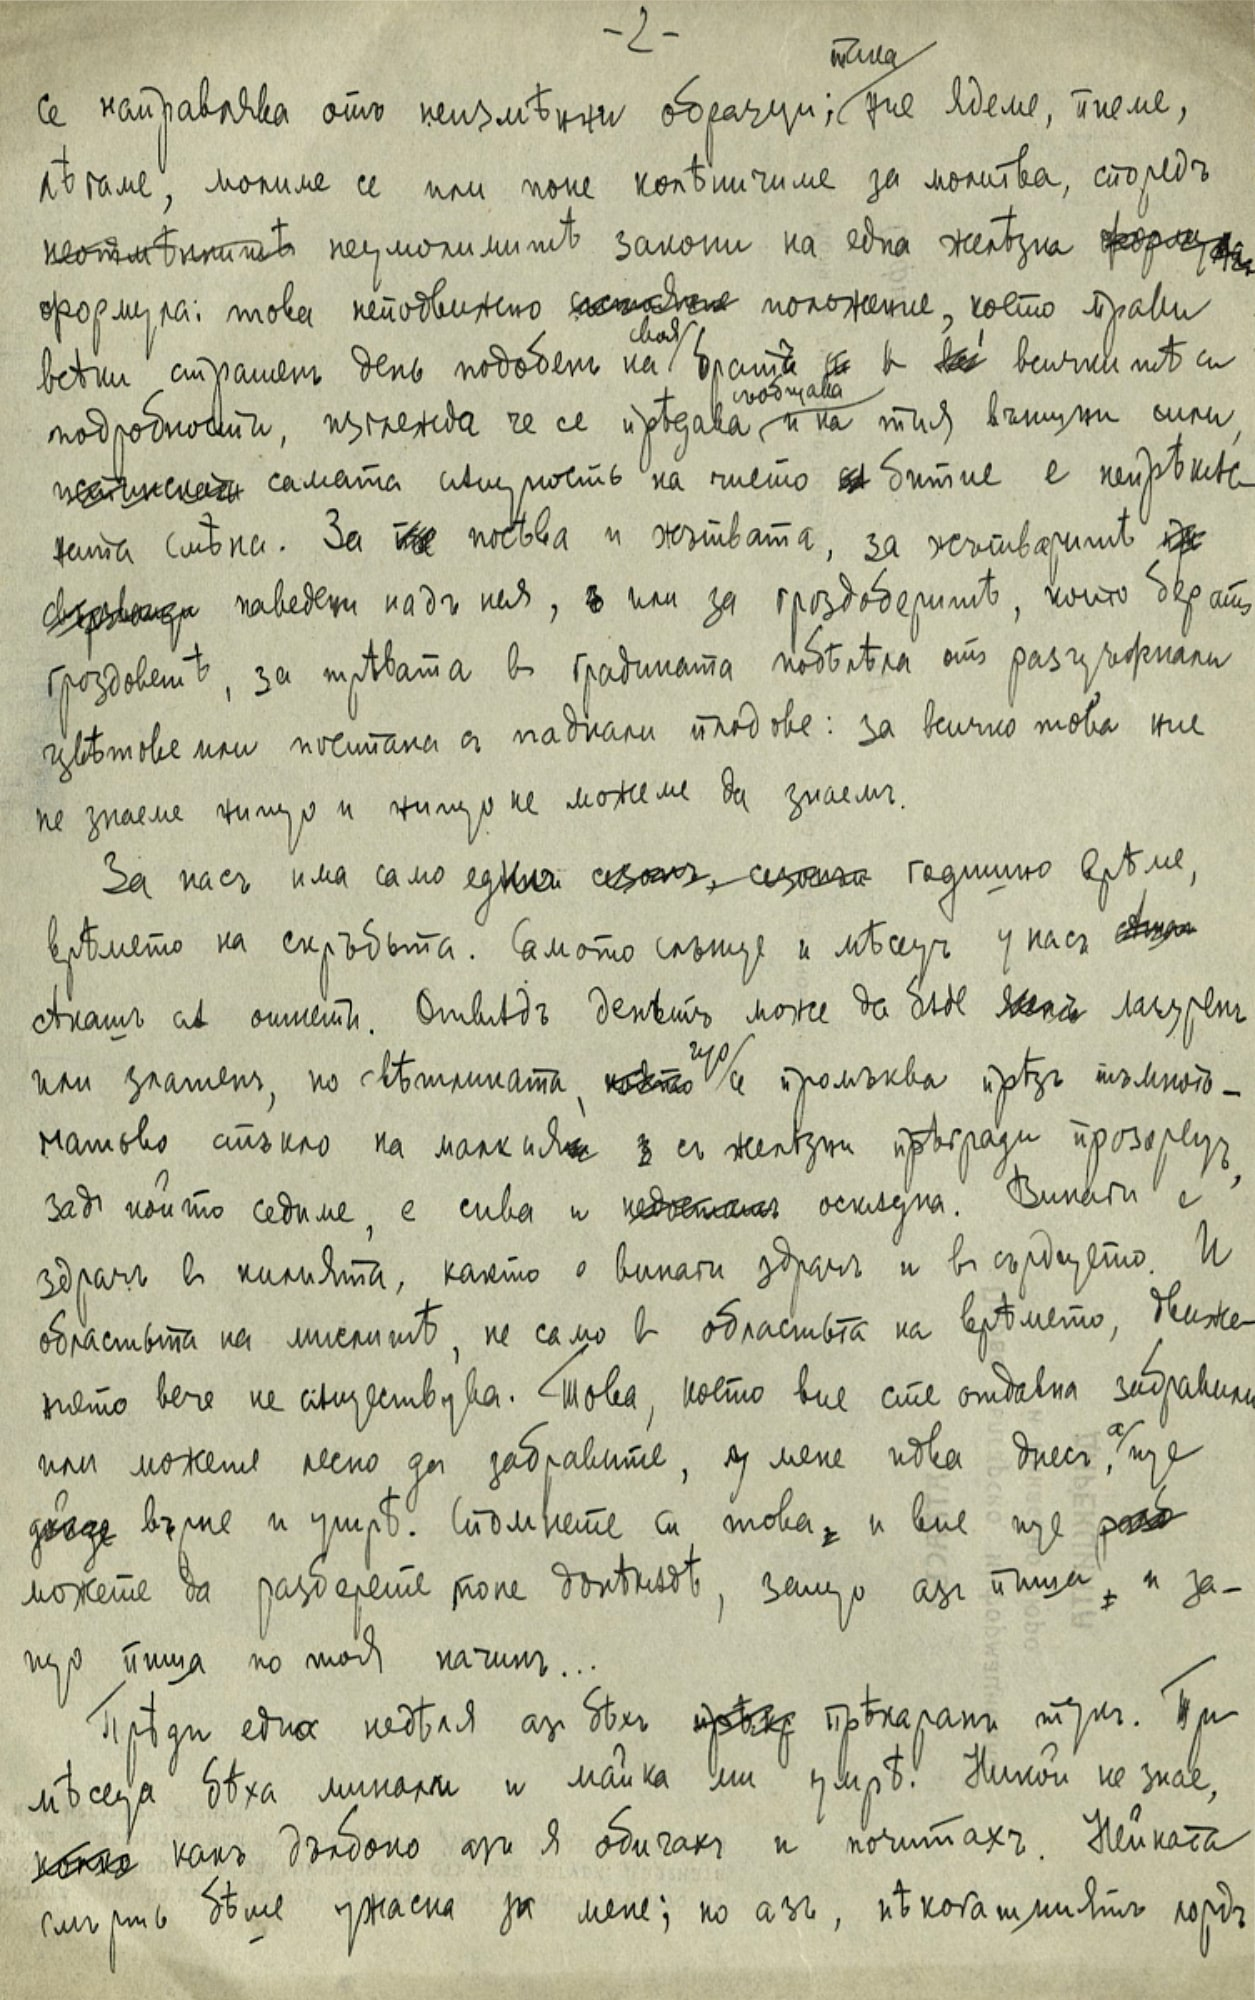 -2-
тъка
се направлява отъ неизмѣнни образци; ние ядеме, пиеме,
лѣгаме, молиме се или поне колѣничиме за молитва, споредъ
неотмѣннитѣ неумолимитѣ закони на една желѣзна
формула: това неподвижно положение, което прави
всѣки страшенъ день подобенъ на своя брата в всичкитѣ си
подробности, изглежда че се прѣдава съобщава и на тия външни сили,
истинската самата сѫщность на чието битие е непрѣкѫс-
ната смѣна. За посѣва и жътвата, за жътваритѣ
наведени надъ нея, или за гроздоберитѣ, които бератъ
гроздоветѣ, за трѣвата въ градината побѣлѣла отъ разцъфнали
цвѣтове или постлана съ паднали плодове: за всичко това ние
не знаеме нищо и нищо не можеме да знаемъ.
За насъ има само едно сезонъ, годишно врѣме,
врѣмето на скръбьта. Самото слънце и мѣсецъ у насъ
сѣкашъ сѫ отнети. Отвѫдъ деньтъ може да бѫде лазуренъ
или златенъ, но свѣтлината, която що се промъква прѣзъ тъмното-
матово стъкло на малкия съ желѣзни прѣгради прозорецъ,
задъ който седиме, е сива и оскѫдна. Винаги е
здрачъ въ килията, както е винаги здрачъ и въ сърдцето. И
областьта на мислитѣ, не само в областьта на врѣмето, движе-
нието вече не сѫществува. Това, което вие сте отдавна забравили
или можете лесно да забравите, у мене идва днесъ, а ще
дойде върне и утрѣ. Спомнете си това, и вие ще
можете да разберете поне донѣкѫдѣ, защо азъ пиша, и за-
що пиша по тоя начинъ...
Прѣди една недѣля азъ бѣхъ прѣкаранъ тукъ. Три
мѣсеца бѣха минали и майка ми умрѣ. Никой не знае,
колко какъ дълбоко азъ я обичахъ и почитахъ. Нейната
смърть бѣше ужасна за мене; но азъ, нѣкогашниятъ лордъ